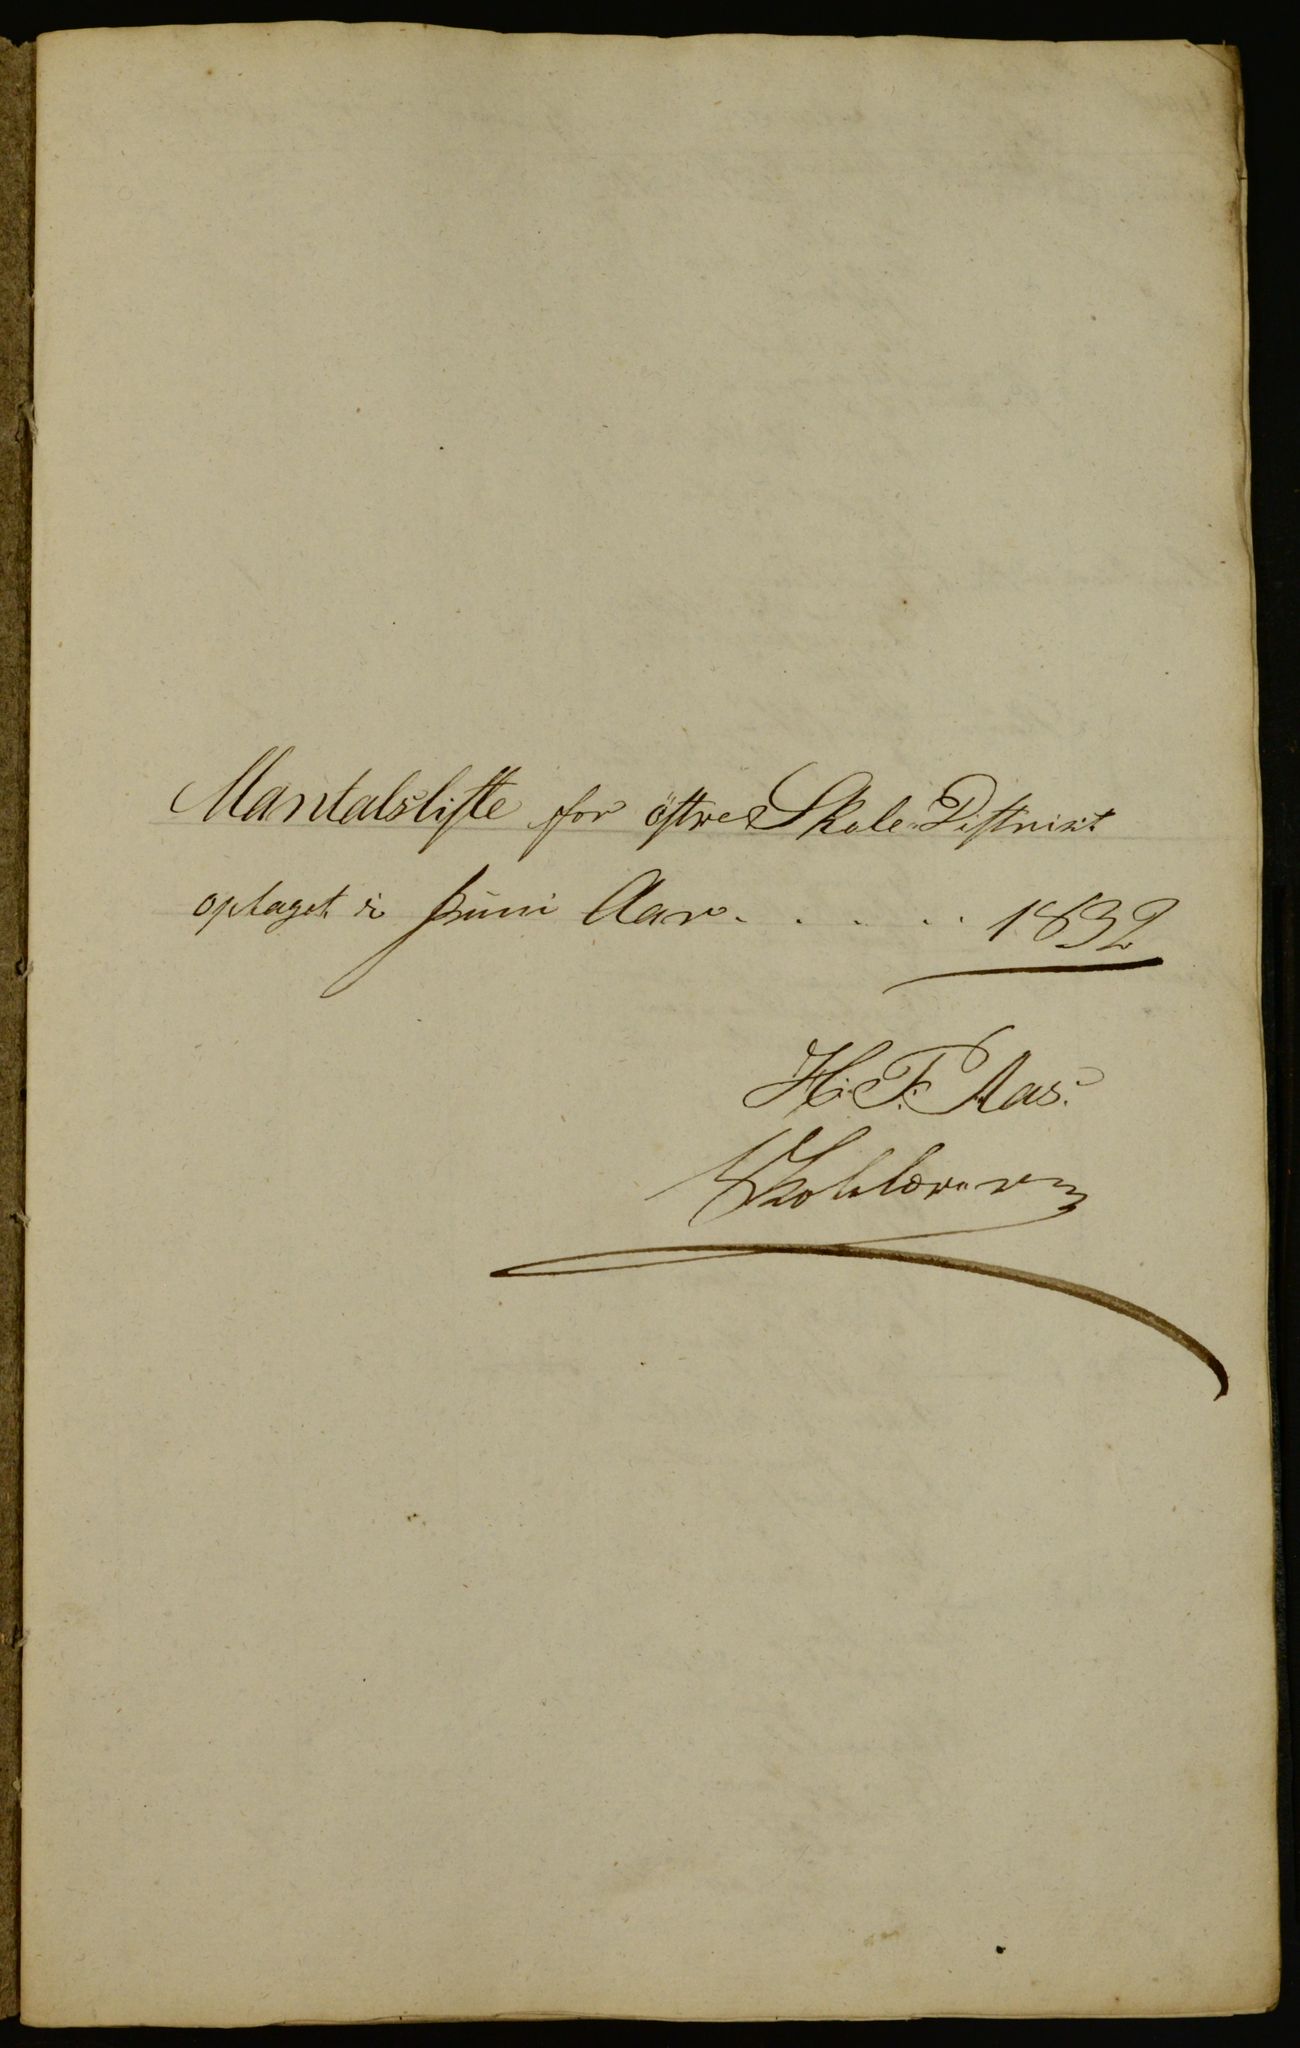 Mantalsliste for östre Skole-Distrikt
optaget i Juni Aar. . . . . . 1832
H. F. Aas.
Skolelærer